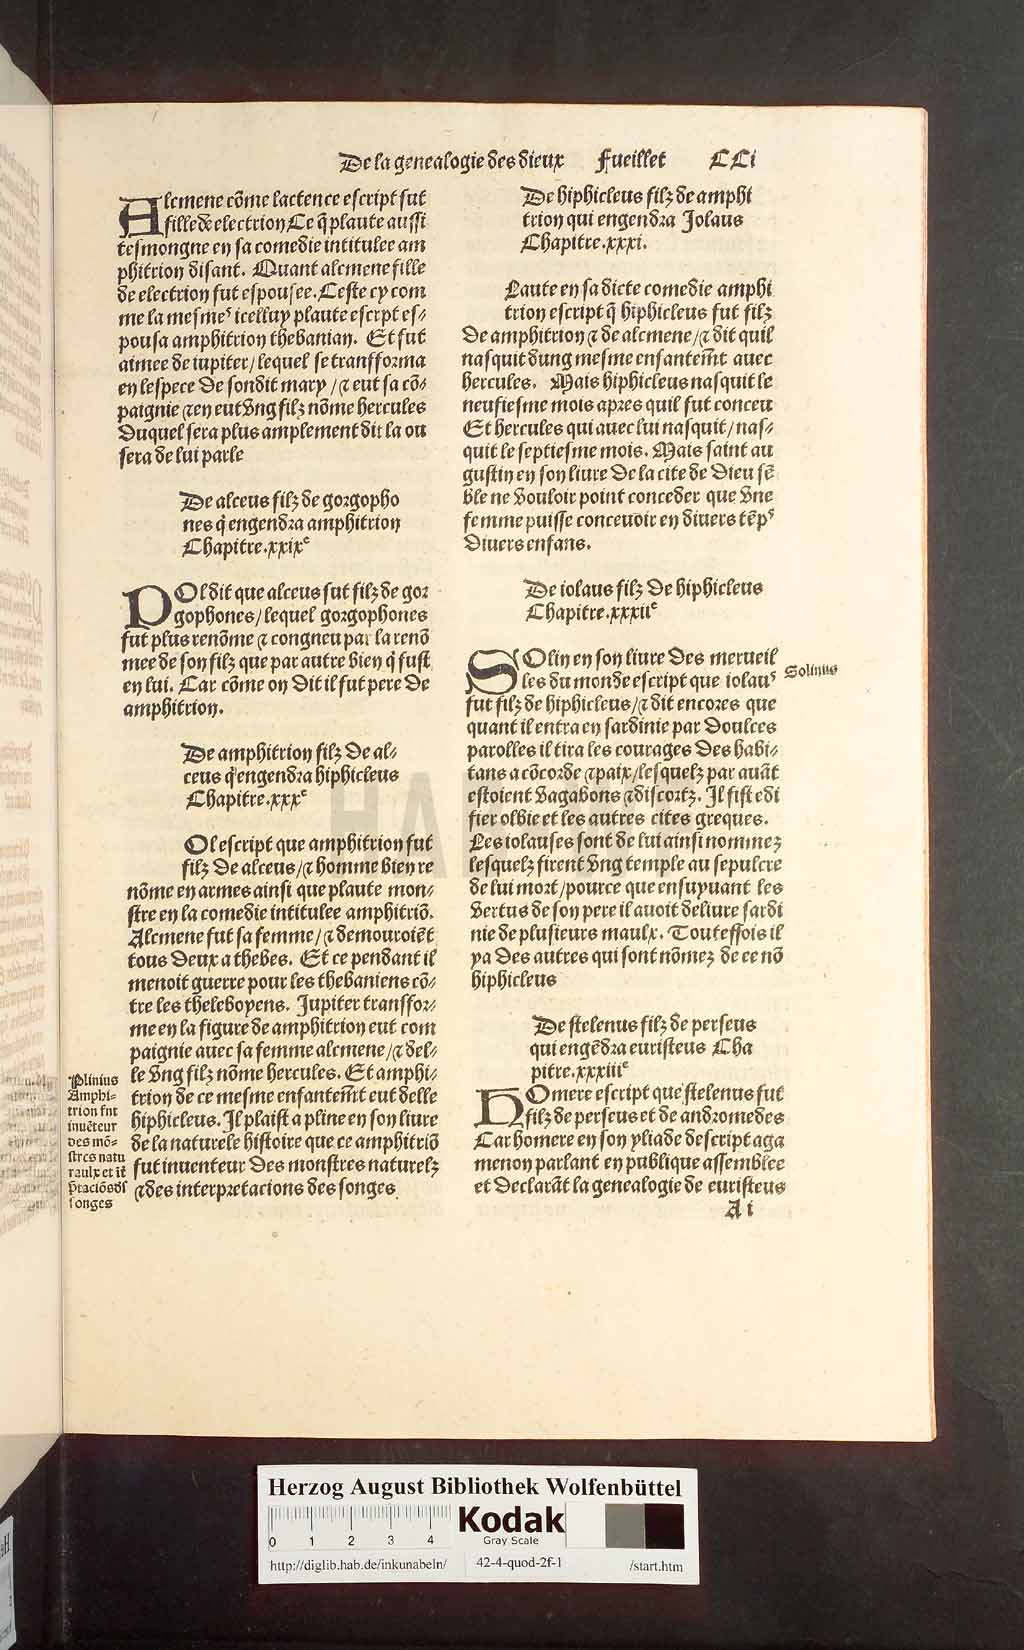 De la genealogie des dieux Fueillet CCi
Alcmene cõme lactence escript fut
fille de electrion Ce q̃ plaute aussi
tesmongne en sa comedie intitulee am
phitrion disant. Quant alcmene fille
de electrion fut espousee. Ceste cy com
me la mesmeˢ icelluy plaute escrpt es⸗
pousa amphitrion thebanian. Et fut
aimee de iupiter/ lequel se transforma
en lespece de son dit mary/⁊ eut sa cõ⸗
paignie ⁊ en eut vng filz nõme hercules
Duquel sera plus amplement dit la ou
sera de lui parle
De alceus filz de gorgopho
nes q̃ engendra amphitrion
Chapitre.xxixᵉ
POl dit que alceus fut filz de gor
gophones/lequel gorgophones
fut plus renõme ⁊ congneu par la renõ
mee de son filz que par autre bien q̃ fust
en lui. Car cõme on dit il fut pere de
amphitrion.
De amphitrion filz de al⸗
ceus q̃ engendra hiphicleus
Chapitre.xxxᵉ
Ol escript que amphitrion fut
filz de alceus/⁊ homme bien re
nõme en armes ainsi que plaute mon⸗
stre en la comedie intitulee amphitriõ.
Alcmene fut sa femme/⁊ demouroiẽt
tous deux a thebes. Et ce pendant il
menoit guerre pour les thebaniens cõ⸗
tre les theleboyens. Jupiter transfor⸗
me en la figure de amphitrion eut com
paignie auec sa femme alcmene/⁊ del⸗
le vng filz nõme hercules. Et amphi⸗
trion de ce mesme enfantem̃t eut delle
hiphicleus. Il plaist a pline en son liure
de la naturele histoire que ce amphitriõ
fut inuenteur des monstres naturelz
⁊ des interpretacions des songes.
Plinius
Amphi⸗
trion fnt
inuẽteur
des mõ⸗
stres natu
raulx et it̃
p̃taciõs ds̃
songes
De hiphicleus filz de amphi
trion qui engendra Jolaus
Chapitre.xxxi.
Laute en sa dicte comedie amphi
trion escript q̃ hiphicleus fut filz
de amphitrion ⁊ de alcmene/⁊ dit quil
nasquit dung mesme enfantem̃t auec
hercules. Mais hiphicleus nasquit le
neufiesme mois apres quil fut conceu
Et hercules qui auec lui nasquit/nas⸗
quit le septiesme mois. Mais saint au
gustin en son liure De la cite de Dieu sẽ
ble ne vouloir point conceder que vne
femme puisse conceuoir en diuers tẽpˢ
Diuers enfans.
De iolaus filz De hiphicleus
Chapitre.xxxiiᵉ
SOlin en son liure Des merueil
les du monde escript que iolauˢ
fut filz de hiphicleus/⁊ dit encores que
quant il entra en sardinie par Doulces
parolles il tira les courages Des habi⸗
tans a cõcorde ⁊ paix/lesquelz par auãt
estoient vagabõs ⁊ discortz. Il fist edi
fier olbie et les autres cites greques.
Les iolauses sont de lui ainsi nommez
lesquelz firent vng temple au sepulcre
de lui mort/pource que ensuyuant les
vertus de son pere il auoit deliure sardi
nie de plusieurs maulx. Touteffois il
ya des autres qui sont nõmez de ce nõ
hiphicleus
Solinus
De stelenus filz de perseus
qui engẽdra euristeus Cha
pitre.xxxiiiᵉ
HOmere escript que stelenus fut
filz de perseus et de andromedes
Car homere en son yliade descript aga
menon parlant en publique assemblee
et declarãt la genealogie de euristeus
A i
HAB
Herzog August Bibliothek Wolfenbüttel
0 1 2 3 4
Kodak
Gray Scale
http://diglib.hab.de/inkunabeln/ 42-4-quod-2f-1 /start.htm